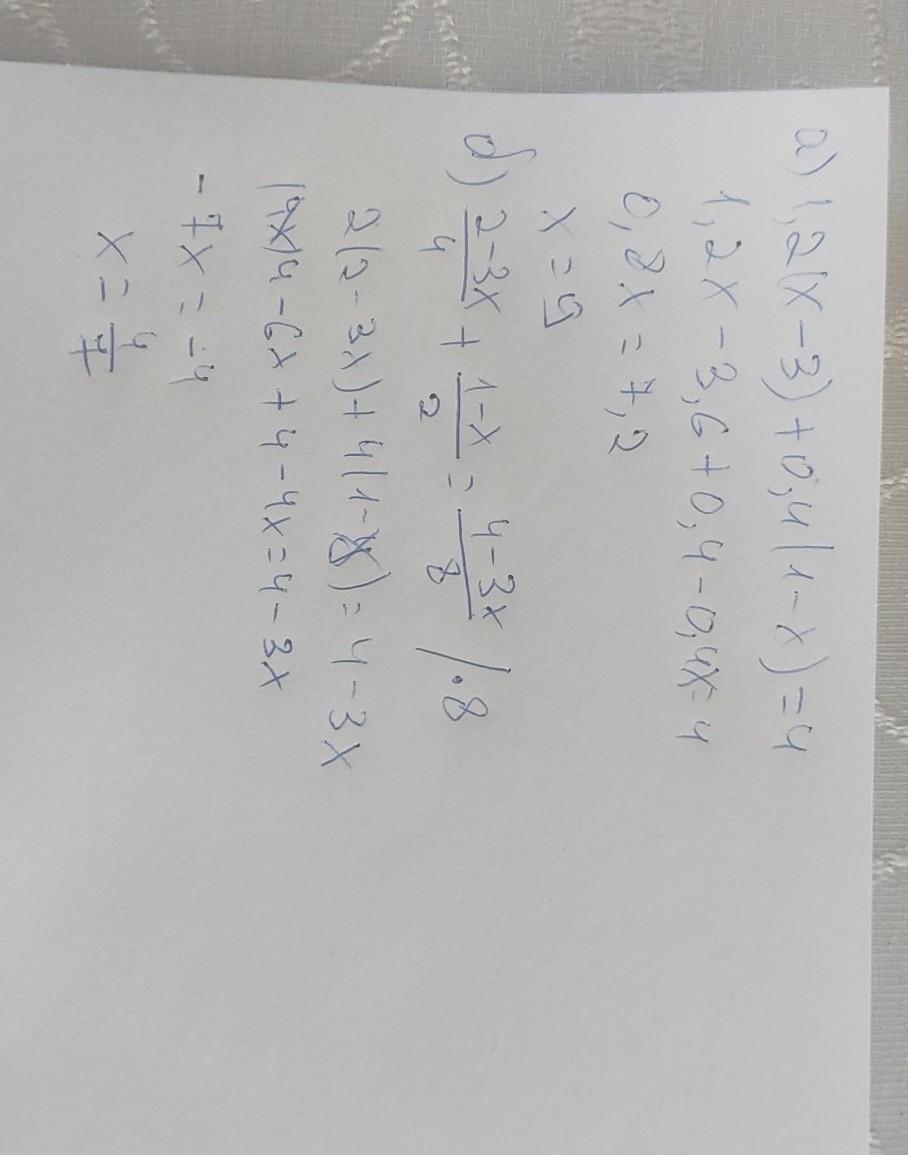 a) 1,2(x-3)+0,4(1-x)=4
1,2x-3,6+0,4-0,4x=4
0,8x=7,2
x=9
d) \frac{2-3x}{4}+\frac{1-x}{2}=\frac{4-3x}{8} /.8
2(2-3x)+4(1-x)=4-3x
4-6x+4-4x=4-3x
-7x=-4
x=\frac{4}{7}